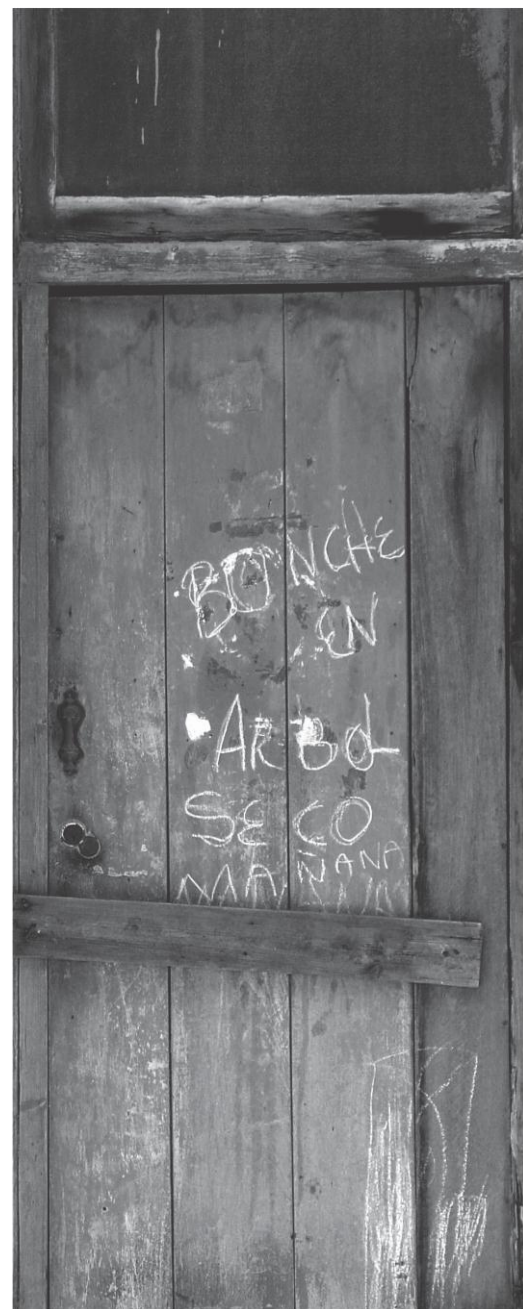 BONCHE
EN
ARBOL
SECO
MAÑANA